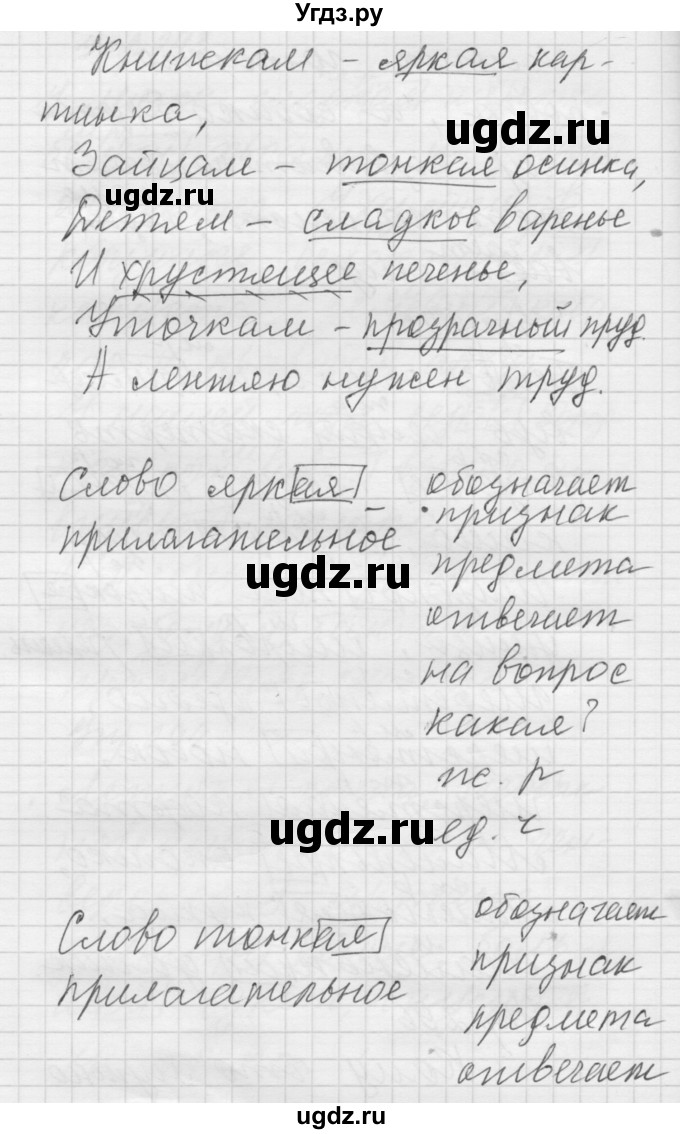 Угдз.ру
Книжкам – яркая кар-
тинка,
ugdz.ru
Зайцам – тонкая осинка,
ugdz.ru
Детям – сладкое варенье
И хрустящее печенье,
Уточкам – прозрачный пруд.
А лентяю нужен труд.
Слово яркая
прилагательное
обозначает
признак
предмета
отвечает
на вопрос
какая?
ж. р
ед. ч
ugdz.ru
ugdz.ru
Слово тонкая
прилагательное
обозначает
признак
предмета
отвечает
ugdz.ru